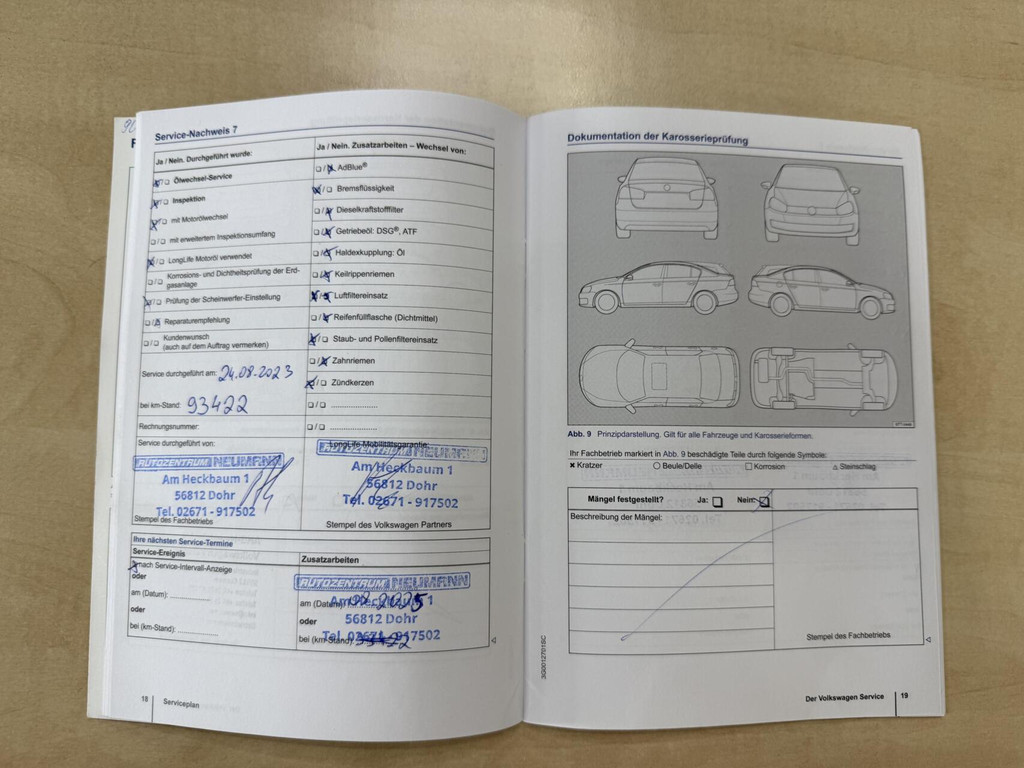 Service-Nachweis 7
Ja / Nein. Durchgeführt wurde:
Ölwechsel-Service
Inspektion
mit Motorölwechsel
mit erweitertem Inspektionsumfang
LongLife Motoröl verwendet
Korrosions- und Dichtheitsprüfung der Erd-
gasanlage
Prüfung der Scheinwerfer-Einstellung
Reparaturempfehlung
Kundenwunsch
(auch auf dem Auftrag vermerken)
Service durchgeführt am: 24.08.2023
bei km-Stand: 93422
Rechnungsnummer:
Service durchgeführt von:
AUTOZENTRUM NEUMANN
Am Heckbaum 1
56812 Dohr
Tel. 02671 - 917502
Stempel des Fachbetriebs
Ja / Nein. Zusatzarbeiten – Wechsel von:
AdBlue®
Bremsflüssigkeit
Dieselkraftstofffilter
Getriebeöl: DSG®, ATF
Haldexkupplung: Öl
Keilrippenriemen
Luftfiltereinsatz
Reifenfüllflasche (Dichtmittel)
Staub- und Pollenfiltereinsatz
Zahnriemen
Zündkerzen
LongLife-Mobilitätsgarantie:
AUTOZENTRUM NEUMANN
Am Heckbaum 1
56812 Dohr
Tel. 02671 - 917502
Stempel des Volkswagen Partners
Ihre nächsten Service-Termine
Service-Ereignis
nach Service-Intervall-Anzeige
oder
am (Datum):
oder
bei (km-Stand):
Zusatzarbeiten
AUTOZENTRUM NEUMANN
am (Datum):
Am Heckbaum 1
oder
56812 Dohr
bei (km-Stand)
Tel. 02671 - 917502
18 Serviceplan
Dokumentation der Karosserieprüfung
Abb. 9 Prinzipdarstellung. Gilt für alle Fahrzeuge und Karosserieformen.
Ihr Fachbetrieb markiert in Abb. 9 beschädigte Teile durch folgende Symbole:
Kratzer Beule/Delle Korrosion Steinschlag
Mängel festgestellt? Ja: Nein:
Beschreibung der Mängel:
Stempel des Fachbetriebs
3G0012701SC
Der Volkswagen Service 19